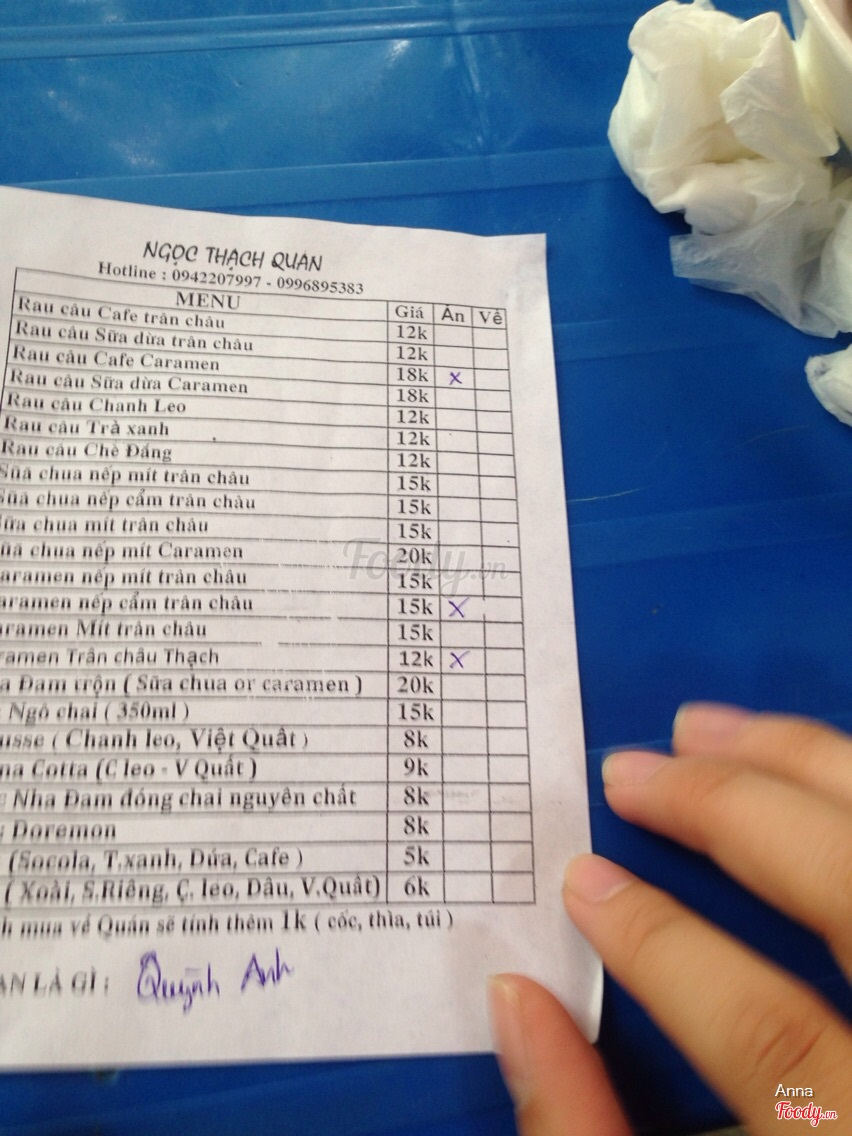 NGỌC THẠCH QUÁN
Hotline : 0942207997 - 0996895383
MENU Giá Ăn Về
Rau câu Cafe trân châu 12k
Rau câu Sữa dừa trân châu 12k
Rau câu Cafe Caramen 18k x
Rau câu Sữa dừa Caramen 18k
Rau câu Chanh Leo 12k
Rau câu Trà xanh 12k
Rau câu Chè Đắng 12k
Sữa chua nếp mít trân châu 15k
Sữa chua nếp cẩm trân châu 15k
Sữa chua mít trân châu 15k
Sữa chua nếp mít Caramen 20k
aramen nếp mít trân châu 15k
aramen nếp cẩm trân châu 15k x
aramen Mít trân châu 15k
ramen Trân châu Thạch 12k x
a Đam trộn ( Sữa chua or caramen ) 20k
Ngô chai ( 350ml ) 15k
usse ( Chanh leo, Việt Quất ) 8k
na Cotta (C leo - V Quất ) 9k
Nha Đam đóng chai nguyên chất 8k
Doremon 8k
(Socola, T.xanh, Dứa, Cafe ) 5k
( Xoài, S.Riêng, C. leo, Dâu, V.Quất) 6k
h mua về Quán sẽ tính thêm 1k ( cốc, thìa, túi )
ẠN LÀ GÌ : Quỳnh Anh
Foody.vn
Anna
Foody.vn